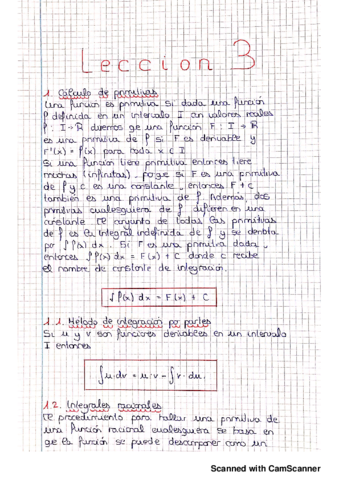 Leccion 3
1. Cálculo de primitivas
Una función es primitiva si dada una función
f definida en un intervalo I con valores reales
f: I→R diremos qe una función F: I→R
es una primitiva de f si F es derivable y
F'(x) = f(x) para toda x ∈ I
Si una función tiene primitiva entonces tiene
muchas (infinitas), porqe si F es una primitiva
de f y c es una constante, entonces F + c
también es una primitiva de f. Además, dos
primitivas cualesquiera de f difieren en una
constante. El conjunto de todas las primitivas
de f es la integral indefinida de f y se denota
por ∫f(x) dx. Si F es una primitiva dada,
entonces ∫f(x) dx = F(x) + C donde c recibe
el nombre de constante de integración.
∫f(x) dx = F(x) + C
1.1. Método de integración por partes
Si u y v son funciones derivables en un intervalo
I entonces
∫u·dv = u·v - ∫v·du.
1.2. Integrales racionales
El procedimiento para hallar una primitiva de
una función racional cualesquiera se basa en
qe la función se puede descomponer como un
Scanned with CamScanner